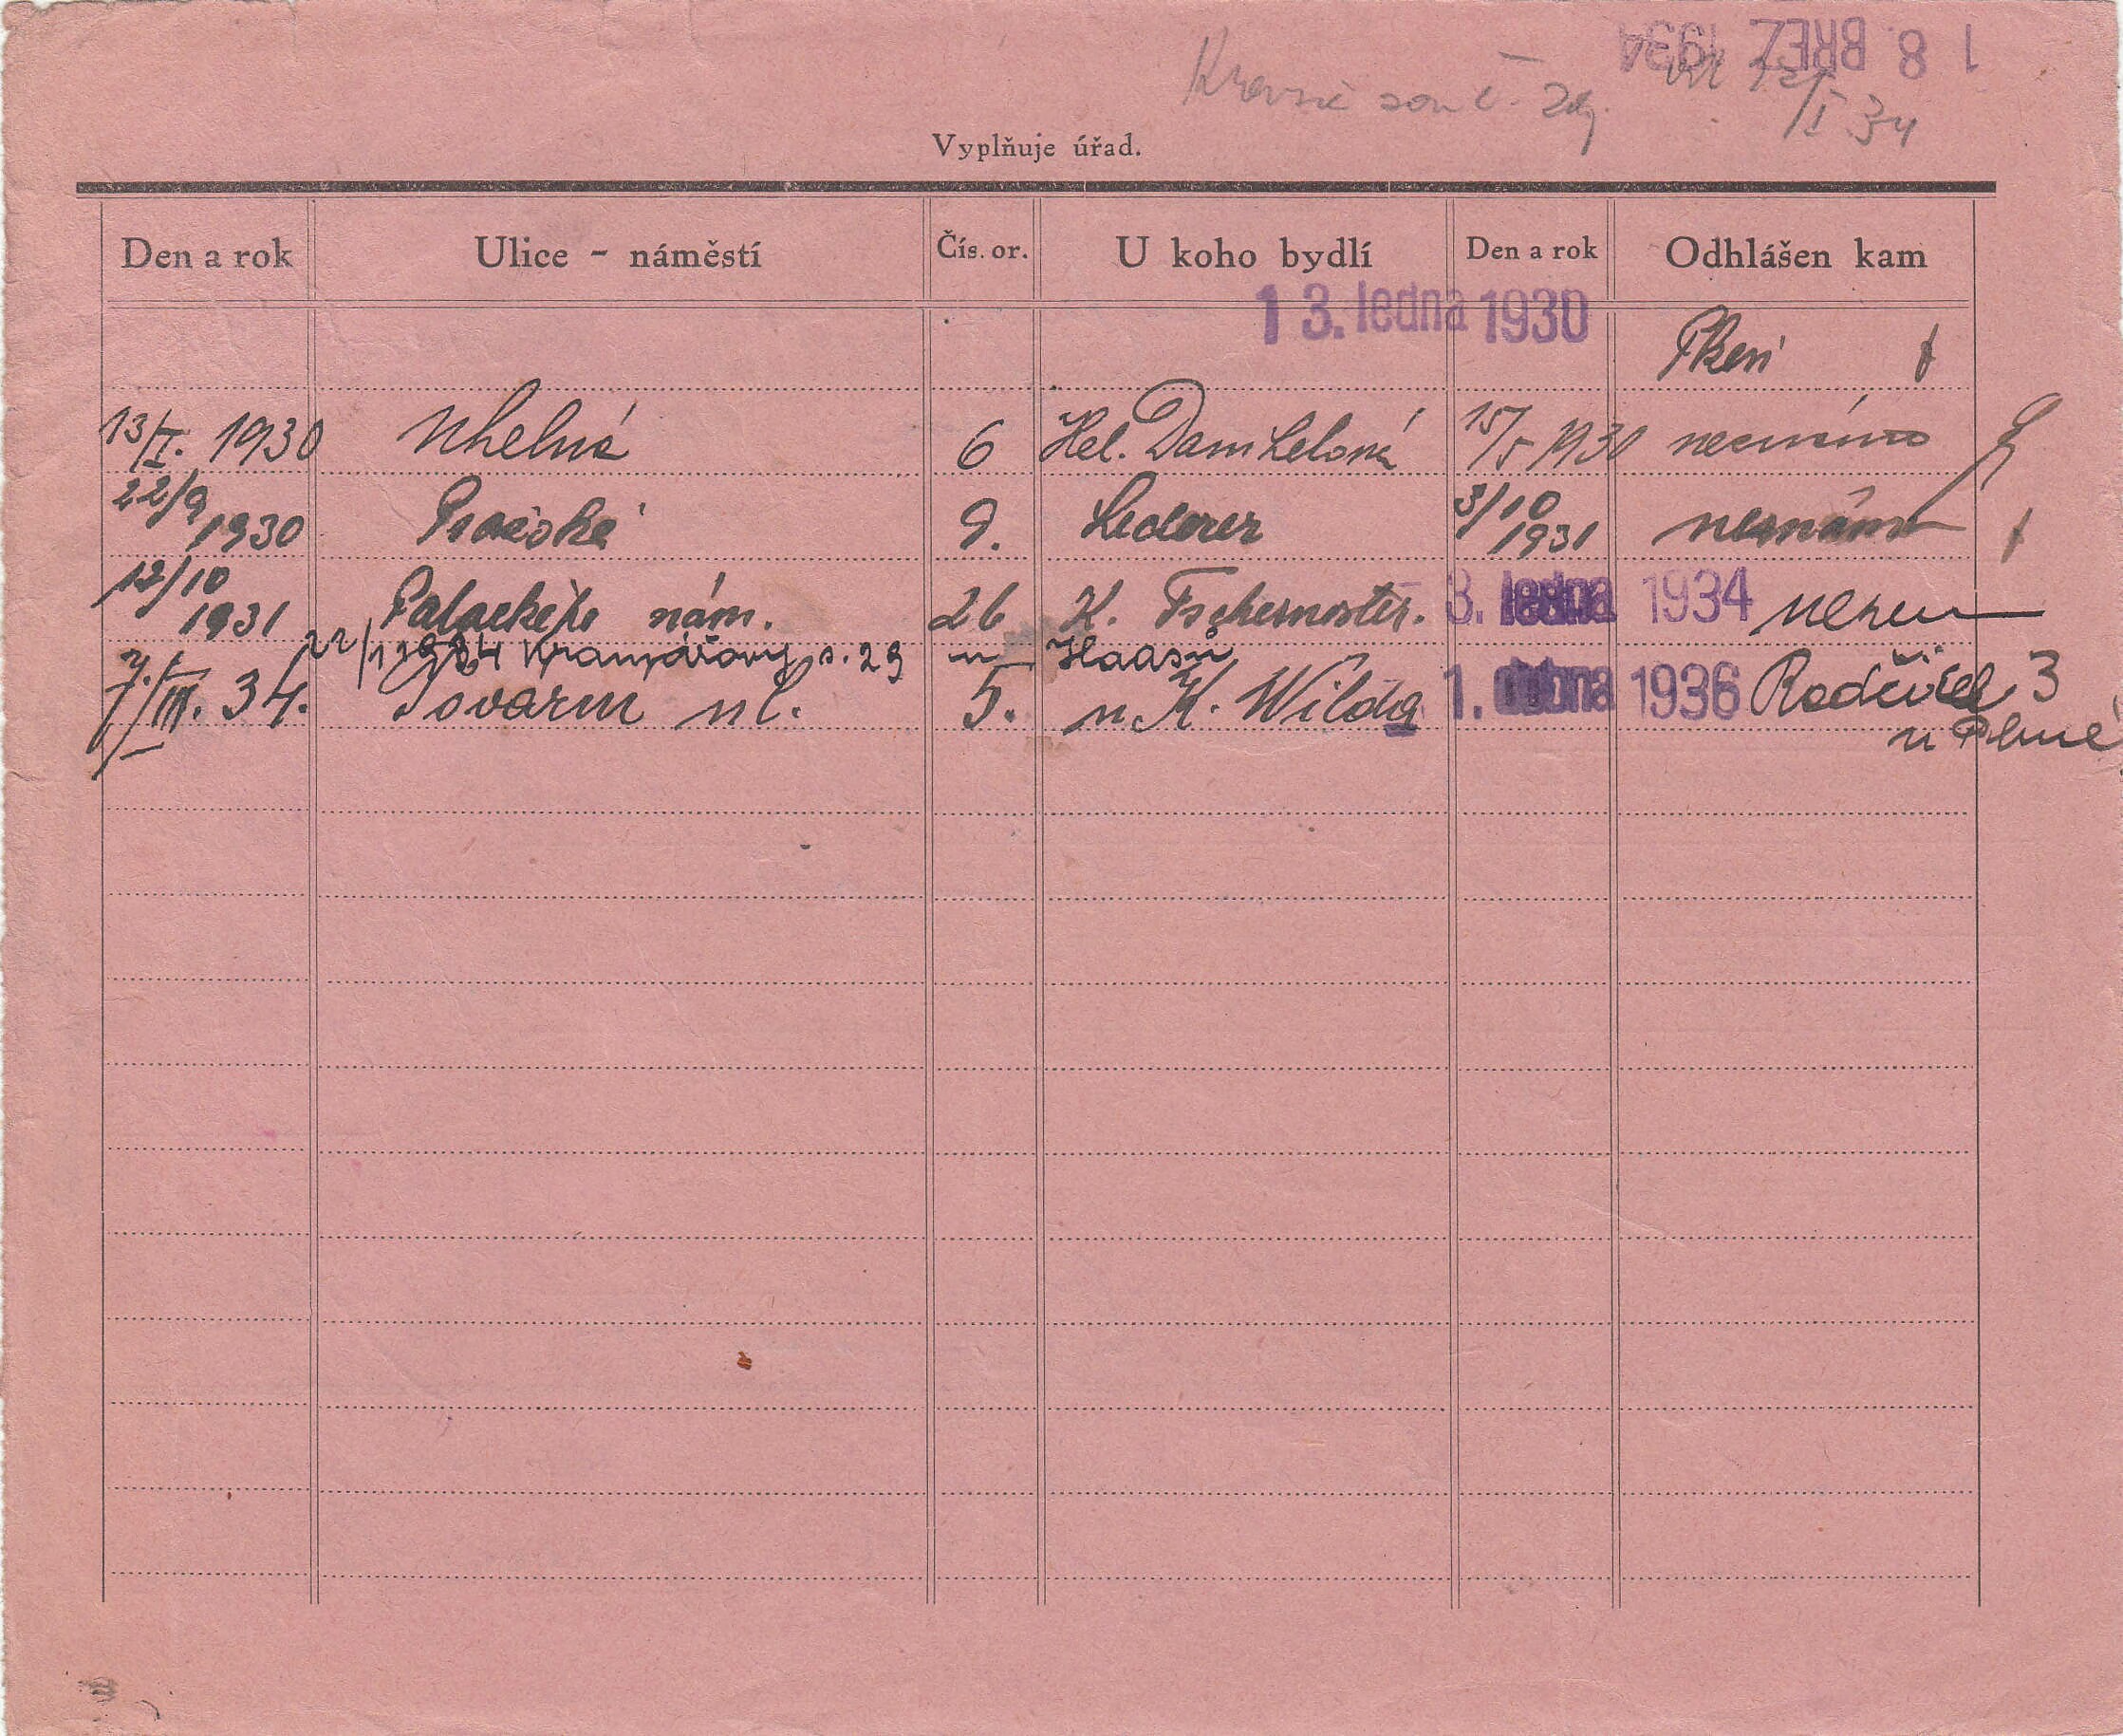 18. BŘEZ. 1934
I 34
Vyplňuje úřad.
Den a rok Ulice - náměstí Čís. or. U koho bydlí Den a rok Odhlášen kam
13. ledna 1930
Plzeň
13/I. 1930 Uhelná 6 Hel. 15/5 1930 neznámo
22/9 1930 9. Lederer 3/10 1931 neznámo
12/10 1931 Palackého nám. 26 K. 3. ledna 1934
22/1 1934 Kramářovy s. 29 u Haasů
7./III. 34. Tovární ul. 5. u K. Wilda 1. dubna 1936 Radčice 3
u Plzně